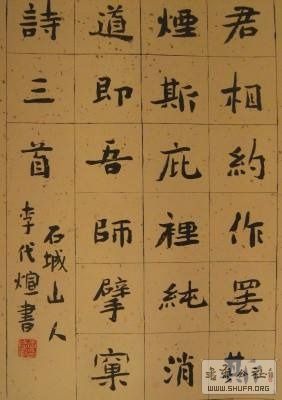 君相約作罷
煙斯庇裡純消
道即吾師擘窠
詩三首
石城山人
李代煊書
WWW.SHUFA.ORG